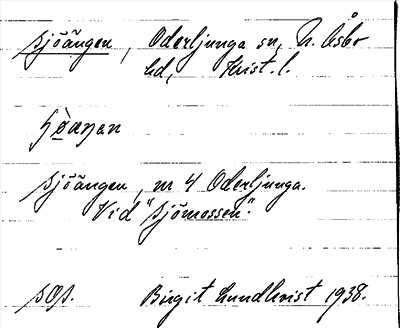 Sjöängen, Oderljunga sn, N. Åsbo
hd, Krist. l.
Sjöängen, nr 4 Oderljunga.
Vid "Sjömossen".
Birgit Lundkvist 1938.